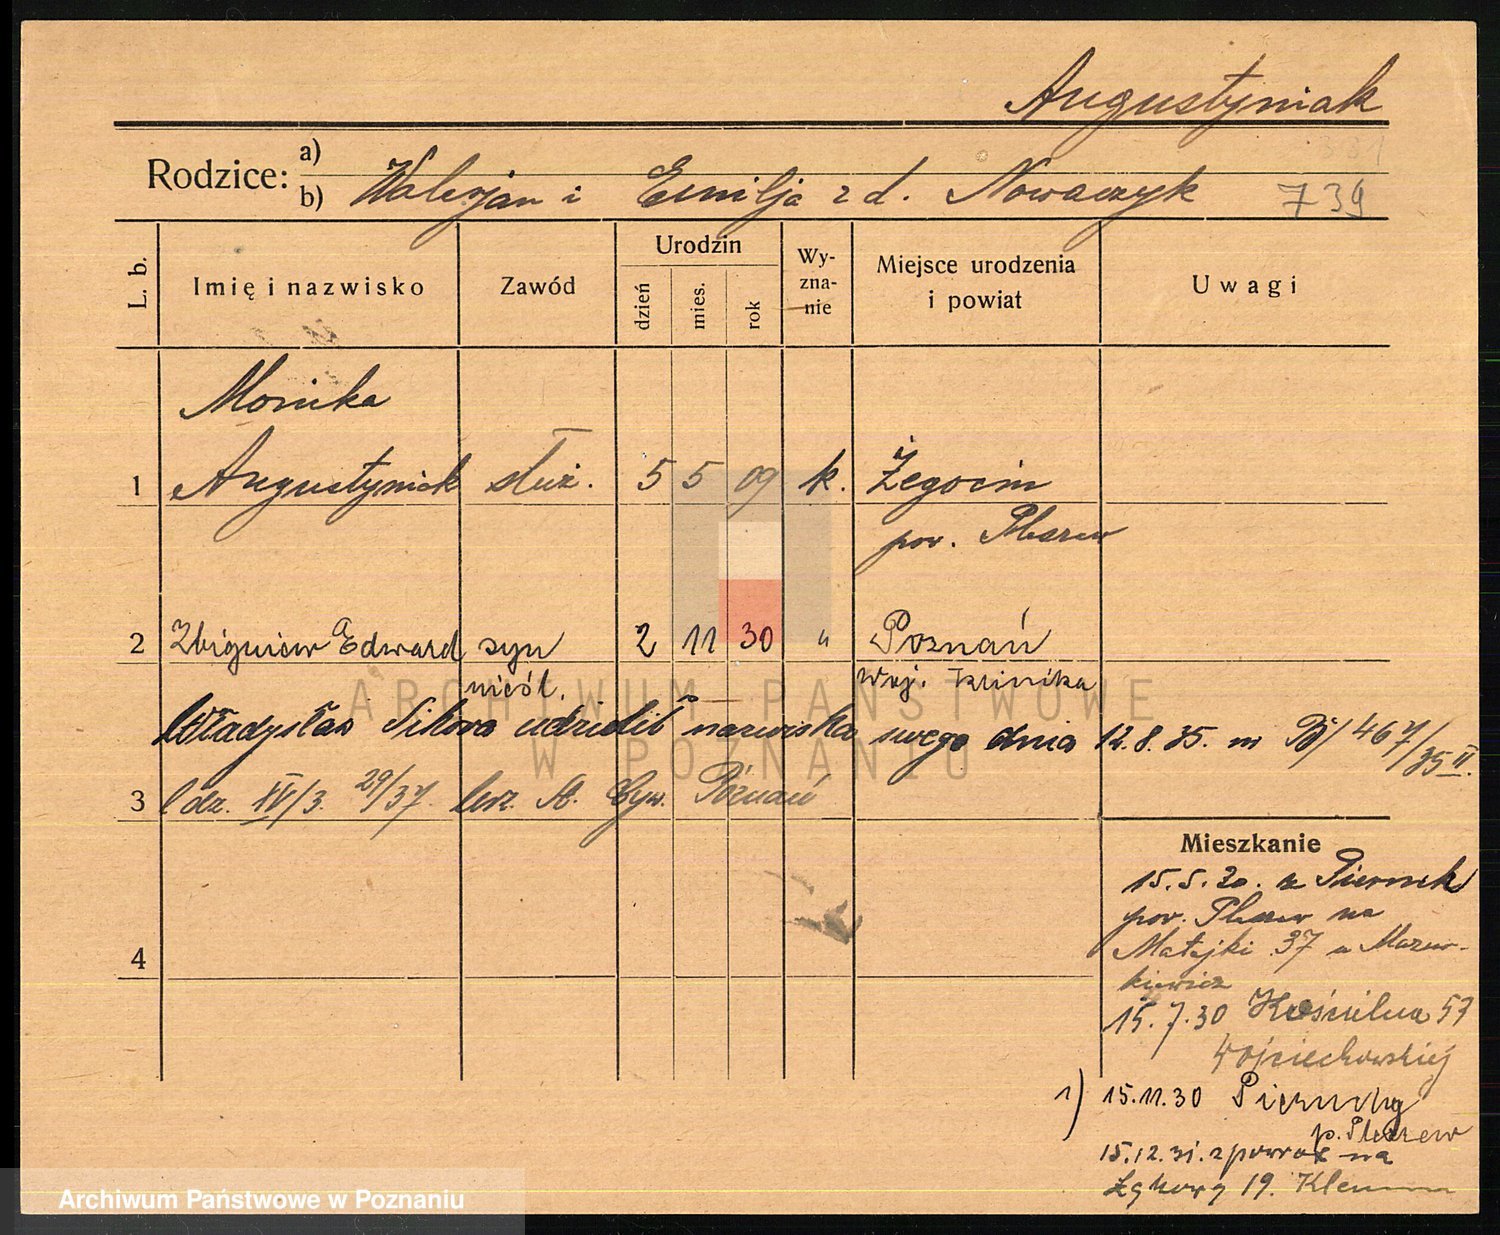 Augustyniak
Rodzice: a)
b) Walerjan i Emilja z d. Nowaczyk 739
L. b.
Imię i nazwisko
Zawód
Urodzin
dzień
mies.
rok
Wy-
zna-
nie
Miejsce urodzenia
i powiat
Uwagi
Monika
1 Augustyniak służ. 5 5 09 k. Żegocin
pow. Pleszew
2 Zbigniew Edward syn 2 11 30 " Poznań
nieśl. Woj. Klinika
Władysław Sikora udzielił nazwiska swego dnia 12.8.35. m B/467/35 II.
3 l dz. IV/3. 29/37. A. Cyw. Poznań
4
Mieszkanie
15.5.30. z
pow. Pleszew na
Matejki 37 u Mazur-
kiewicz
15.7.30 Kościelna 57
Wojciechowskiej
1) 15.11.30 Pieruchy
p. Pleszew
15.12.31. z powrot na
Łąkowy 19. Klemma
ARCHIWUM PAŃSTWOWE
W POZNANIU
Archiwum Państwowe w Poznaniu